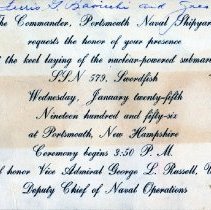 The Commander, Portsmouth Naval Shipyar
requests the honor of your presence
the keel laying of the nuclear-powered submar
SSN 579, Swordfish
Wednesday, January twenty-fifth
Nineteen hundred and fifty-six
at Portsmouth, New Hampshire
Ceremony begins 3:50 P. M.
honor Vice Admiral George L. Russell, U
Deputy Chief of Naval Operations